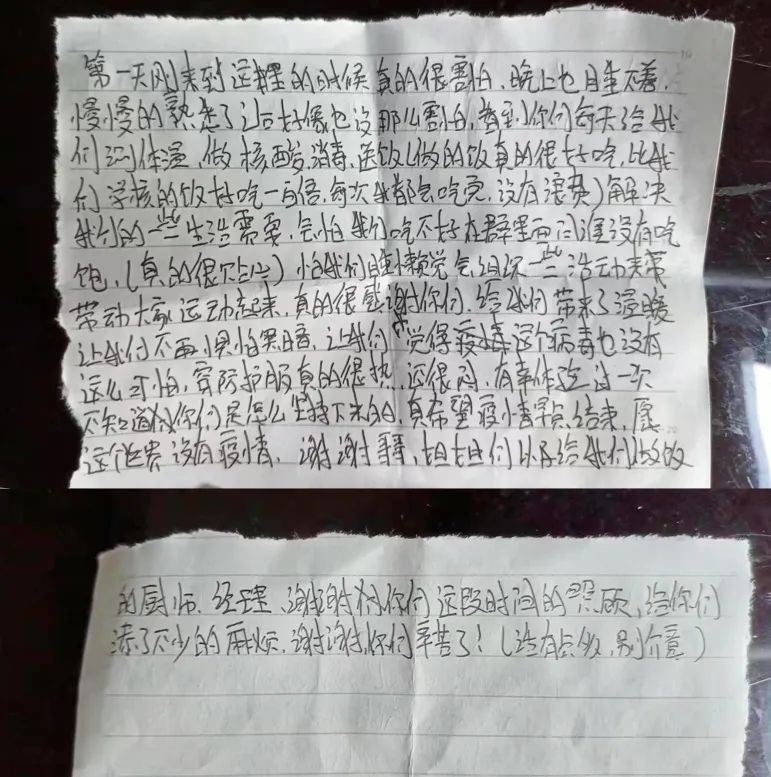 第一天刚来到这里的时候真的很害怕,晚上也睡不着,
慢慢的熟悉了过后好像也没那么害怕,看到你们每天给我
们测体温,做核酸,消毒,送饭(做的饭真的很好吃,比我
们学校的饭好吃一百倍,每次我都会吃完,没有浪费)解决
我们的一些生活需要,会怕我们吃不好在群里面问谁没有吃
饱,(真的很贴心)怕我们睡懒觉会组织一些活动来带
带动大家运动起来,真的很感谢你们,给我们带来了温暖
让我们不再惧怕黑暗,让我们觉得疫情这个病毒也没有
这么可怕,穿防护服真的很热,还很闷,有幸体验过一次
不知道你们是怎么坚持下来的,真希望疫情早点结束,愿
这个世界没有疫情,谢谢哥哥,姐姐们以及给我们做饭
的厨师、经理、谢谢你们这段时间的照顾,给你们
添了不少的麻烦,谢谢,你们辛苦了!(话有点多,别介意)